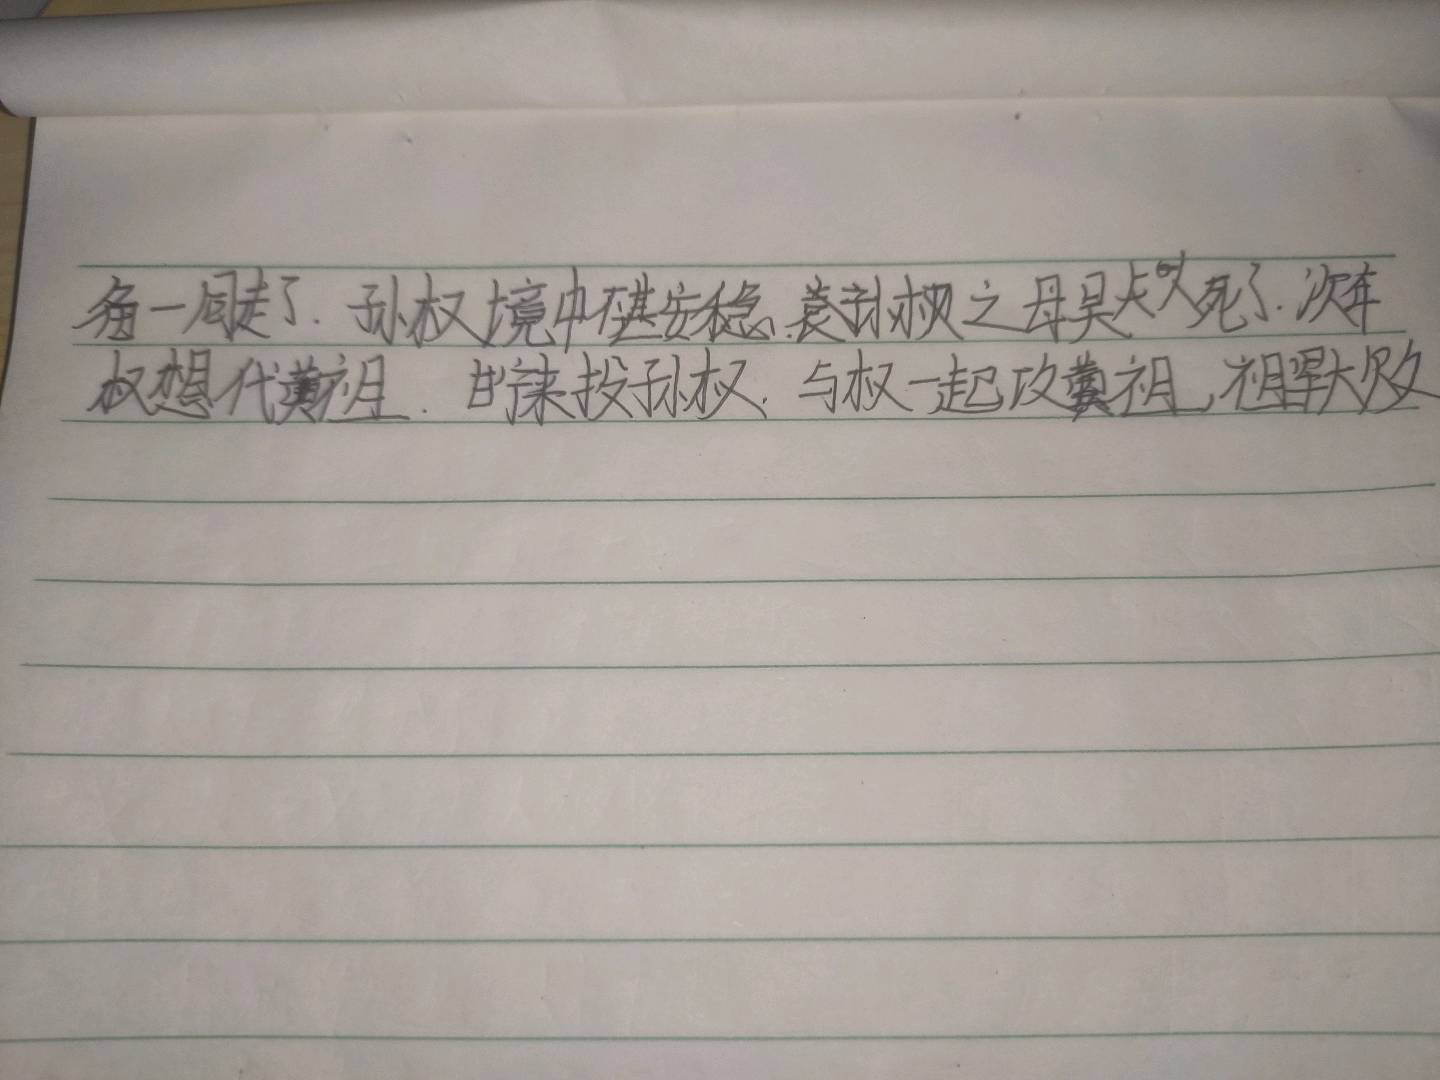 一同走了.孙权境中甚安稳.孙权之母吴太夫死了.次年
权想代黄祖.甘来投孙权.与权一起攻黄祖,祖大败